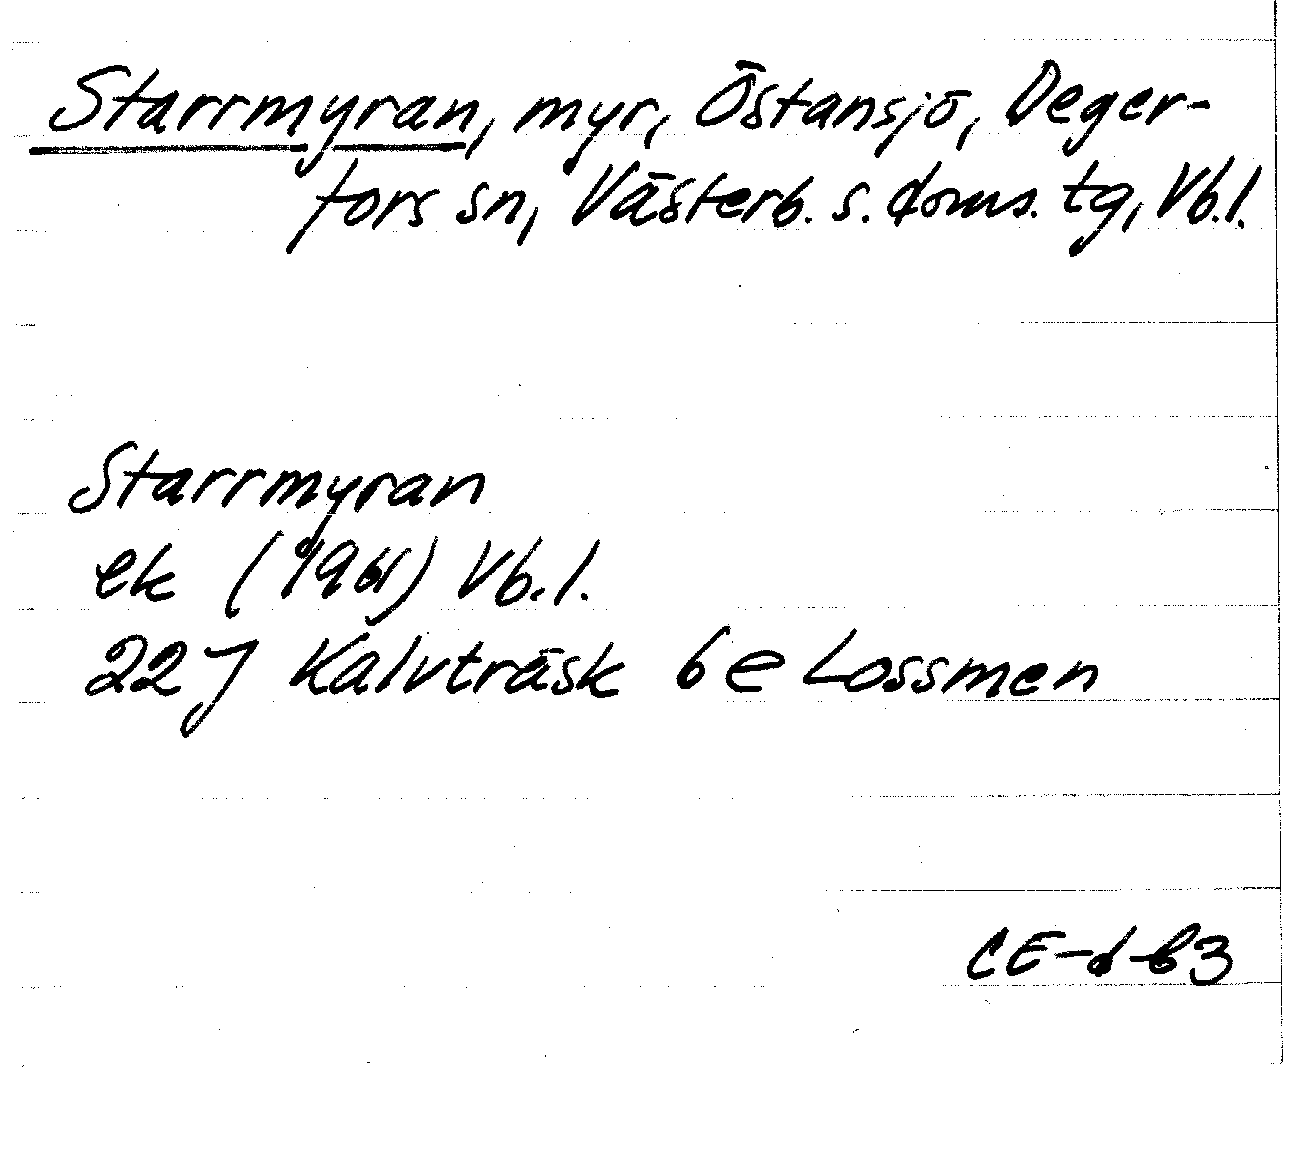 Starrmyran, myr, Östansjö, Deger-
fors sn, Västerb. s. doms. tg, Vb.l.
Starrmyran
ek (1961) Vb.l.
22J Kalvträsk 6e Lossmen
CE-d-63